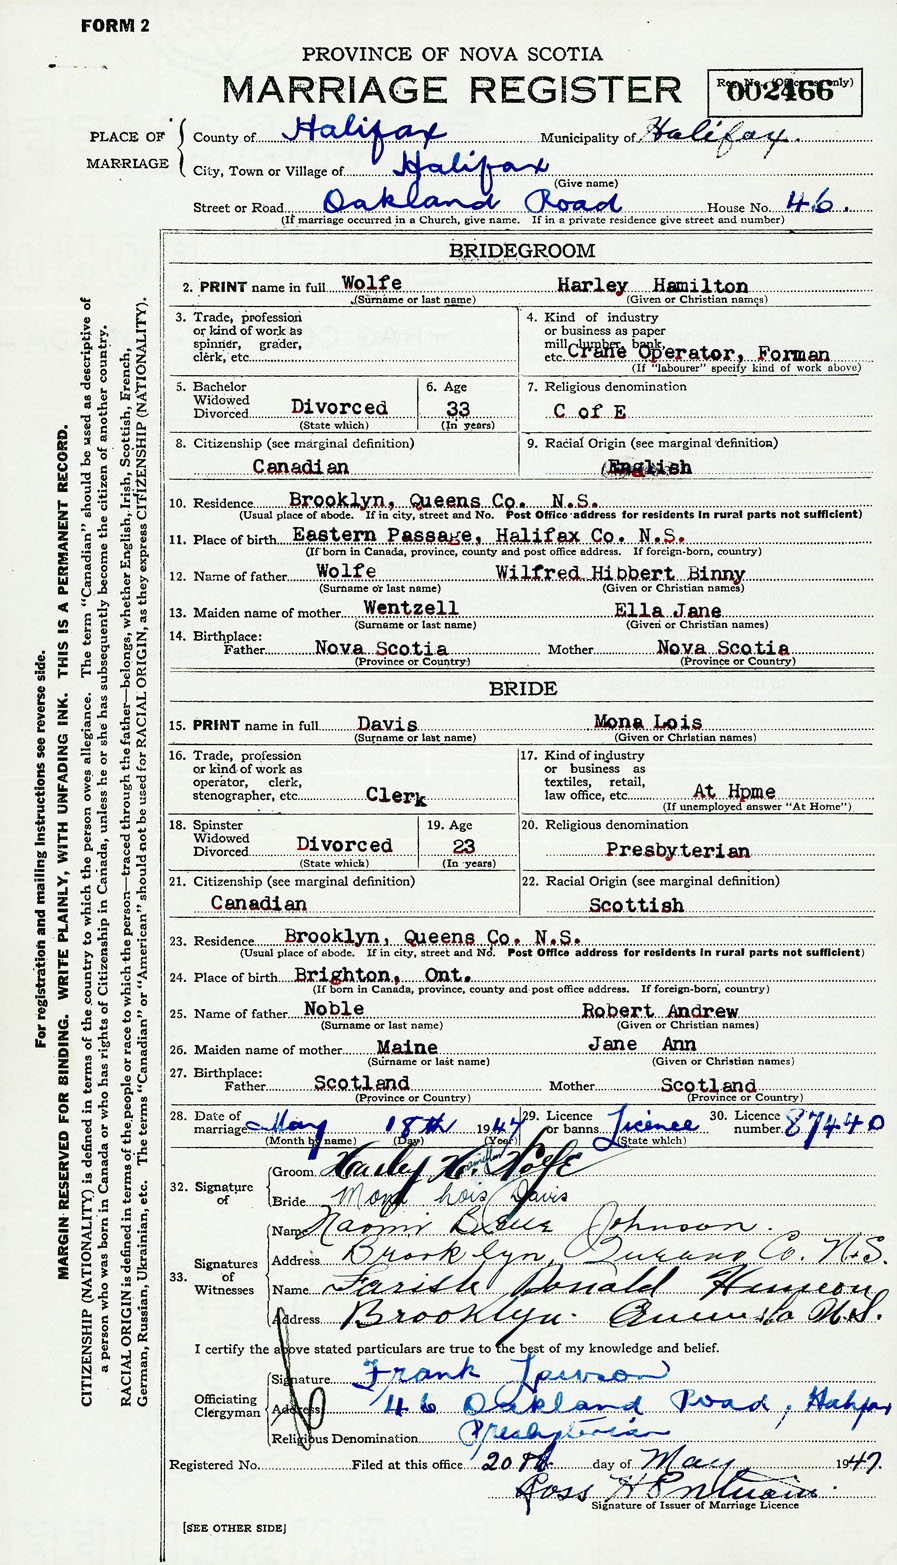 FORM 2
PROVINCE OF NOVA SCOTIA
MARRIAGE REGISTER
Reg. No. (Office use only)
002466
PLACE OF MARRIAGE
County of Halifax Municipality of Halifax.
City, Town or Village of Halifax
(Give name)
Street or Road Oakland Road House No. 46.
(If marriage occurred in a Church, give name. If in a private residence give street and number)
BRIDEGROOM
2. PRINT name in full Wolfe Harley Hamilton
(Surname or last name) (Given or Christian names)
3. Trade, profession
or kind of work as
spinner, grader,
clerk, etc.
4. Kind of industry
or business as paper
mill, lumber, bank,
etc. Crane Operator, Forman
(If "labourer" specify kind of work above)
5. Bachelor
Widowed
Divorced Divorced
(State which)
6. Age
33
(In years)
7. Religious denomination
C of E
8. Citizenship (see marginal definition)
Canadian
9. Racial Origin (see marginal definition)
English
10. Residence Brooklyn, Queens Co. N.S.
(Usual place of abode. If in city, street and No. Post Office address for residents in rural parts not sufficient)
11. Place of birth Eastern Passage, Halifax Co. N.S.
(If born in Canada, province, county and post office address. If foreign-born, country)
12. Name of father Wolfe Wilfred Hibbert Binny
(Surname or last name) (Given or Christian names)
13. Maiden name of mother Wentzell Ella Jane
(Surname or last name) (Given or Christian names)
14. Birthplace:
Father Nova Scotia Mother Nova Scotia
(Province or Country) (Province or Country)
BRIDE
15. PRINT name in full Davis Mona Lois
(Surname or last name) (Given or Christian names)
16. Trade, profession
or kind of work as
operator, clerk,
stenographer, etc. Clerk
17. Kind of industry
or business as
textiles, retail,
law office, etc. At Hpme
(If unemployed answer "At Home")
18. Spinster
Widowed
Divorced Divorced
(State which)
19. Age
23
(In years)
20. Religious denomination
Presbyterian
21. Citizenship (see marginal definition)
Canadian
22. Racial Origin (see marginal definition)
Scottish
23. Residence Brooklyn, Queens Co. N.S.
(Usual place of abode. If in city, street and No. Post Office address for residents in rural parts not sufficient)
24. Place of birth Brighton, Ont.
(If born in Canada, province, county and post office address. If foreign-born, country)
25. Name of father Noble Robert Andrew
(Surname or last name) (Given or Christian names)
26. Maiden name of mother Maine Jane Ann
(Surname or last name) (Given or Christian names)
27. Birthplace:
Father Scotland Mother Scotland
(Province or Country) (Province or Country)
28. Date of
marriage May 18th 1947
(Month by name) (Day) (Year)
29. Licence
or banns Licence
(State which)
30. Licence
number. 87440
32. Signature of
Groom Harley H. Wolfe
Bride Mona Lois Davis
33. Signatures of Witnesses
Name Naomi Johnson.
Address Brooklyn, Queens Co. N.S.
Name Farish Donald
Address Brooklyn. N.S.
I certify the above stated particulars are true to the best of my knowledge and belief.
Officiating Clergyman
Signature Frank Lawson
Address 46 Oakland Road, Halifax
Religious Denomination Presbyterian
Registered No. Filed at this office 20th day of May 1947.
Ross H
Signature of Issuer of Marriage Licence
[SEE OTHER SIDE]
For registration and mailing instructions see reverse side.
MARGIN RESERVED FOR BINDING. WRITE PLAINLY, WITH UNFADING INK. THIS IS A PERMANENT RECORD.
CITIZENSHIP (NATIONALITY) is defined in terms of the country to which the person owes allegiance. The term "Canadian" should be used as descriptive of
a person who was born in Canada or who has rights of Citizenship in Canada, unless he or she has subsequently become the citizen of another country.
RACIAL ORIGIN is defined in terms of the people or race to which the person—traced through the father—belongs, whether English, Irish, Scottish, French,
German, Russian, Ukrainian, etc. The terms "Canadian" or "American" should not be used for RACIAL ORIGIN, as they express CITIZENSHIP (NATIONALITY).